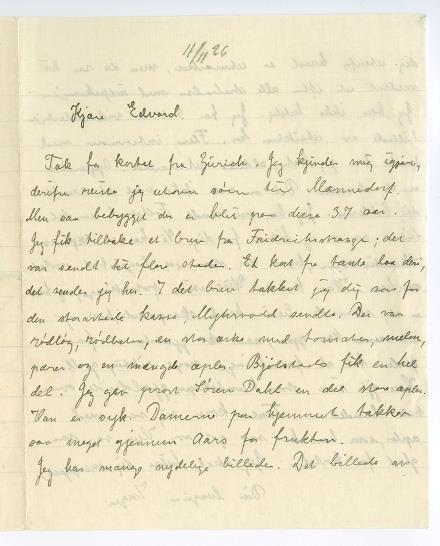 11/11 26
Kjære Edvard.
Tak for kortet fra Zürich. Jeg kjender mig igjen,
derfra reiste jeg utover søen til Mænnedorf.
Men saa bebygget der er blit paa disse 37 aar.
Jeg fik tilbake et brev fra Friedrichstrasse; det
var sendt til flere steder. Et kort fra tante laa deri,
det sender jeg her. I det brev takket jeg dig saa for
den storartede kasse Myhrvold sendte. Der var
rødløg, rødbeter, en stor æske med tomater, melon,
pærer og en mængde æpler. Bjølstads fik en hel
del. Jeg gav prost Søren Dahl en del store æpler.
Han er syk. Damerne paa hjemmet takker
saa meget gjennem Aars for frukten.
Jeg har mange nydelige billeder. Det billede av